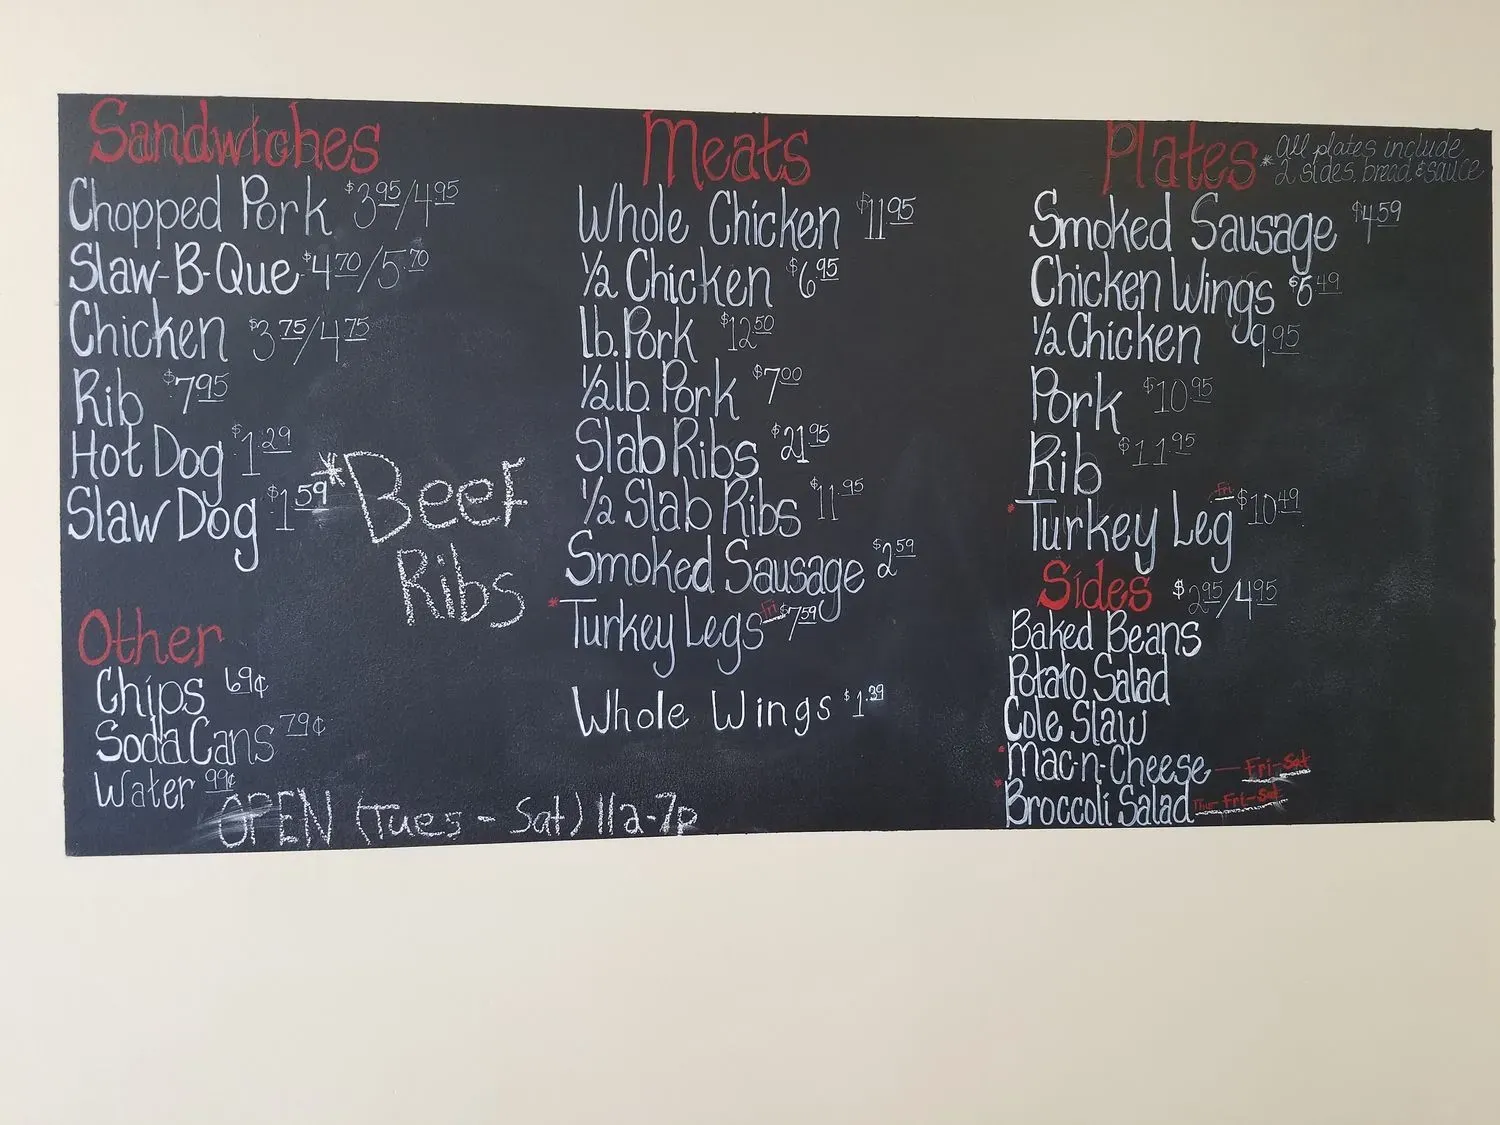 Sandwiches
Chopped Pork $3.95/4.95
Slaw-B-Que $4.70/5.70
Chicken $3.75/4.75
Rib $7.95
Hot Dog $1.29
Slaw Dog $1.59
*Beef
Ribs
Other
Chips 69¢
Soda Cans 79¢
Water 99¢
OPEN (Tues - Sat) 11a-7p
Meats
Whole Chicken $11.95
1/2 Chicken $6.95
lb. Pork $12.50
1/2 lb. Pork $7.00
Slab Ribs $21.95
1/2 Slab Ribs $11.95
Smoked Sausage $2.59
*Turkey Legs Fri $7.59
Whole Wings $1.39
Plates *all plates include
2 sides, bread & sauce
Smoked Sausage $4.59
Chicken Wings $6.49
1/2 Chicken 9.95
Pork $10.95
Rib $11.95
*Turkey Leg Fri $10.49
Sides $2.95/4.95
Baked Beans
Potato Salad
Cole Slaw
*Mac-n-Cheese — Fri-Sat
*Broccoli Salad Thur- Fri-Sat